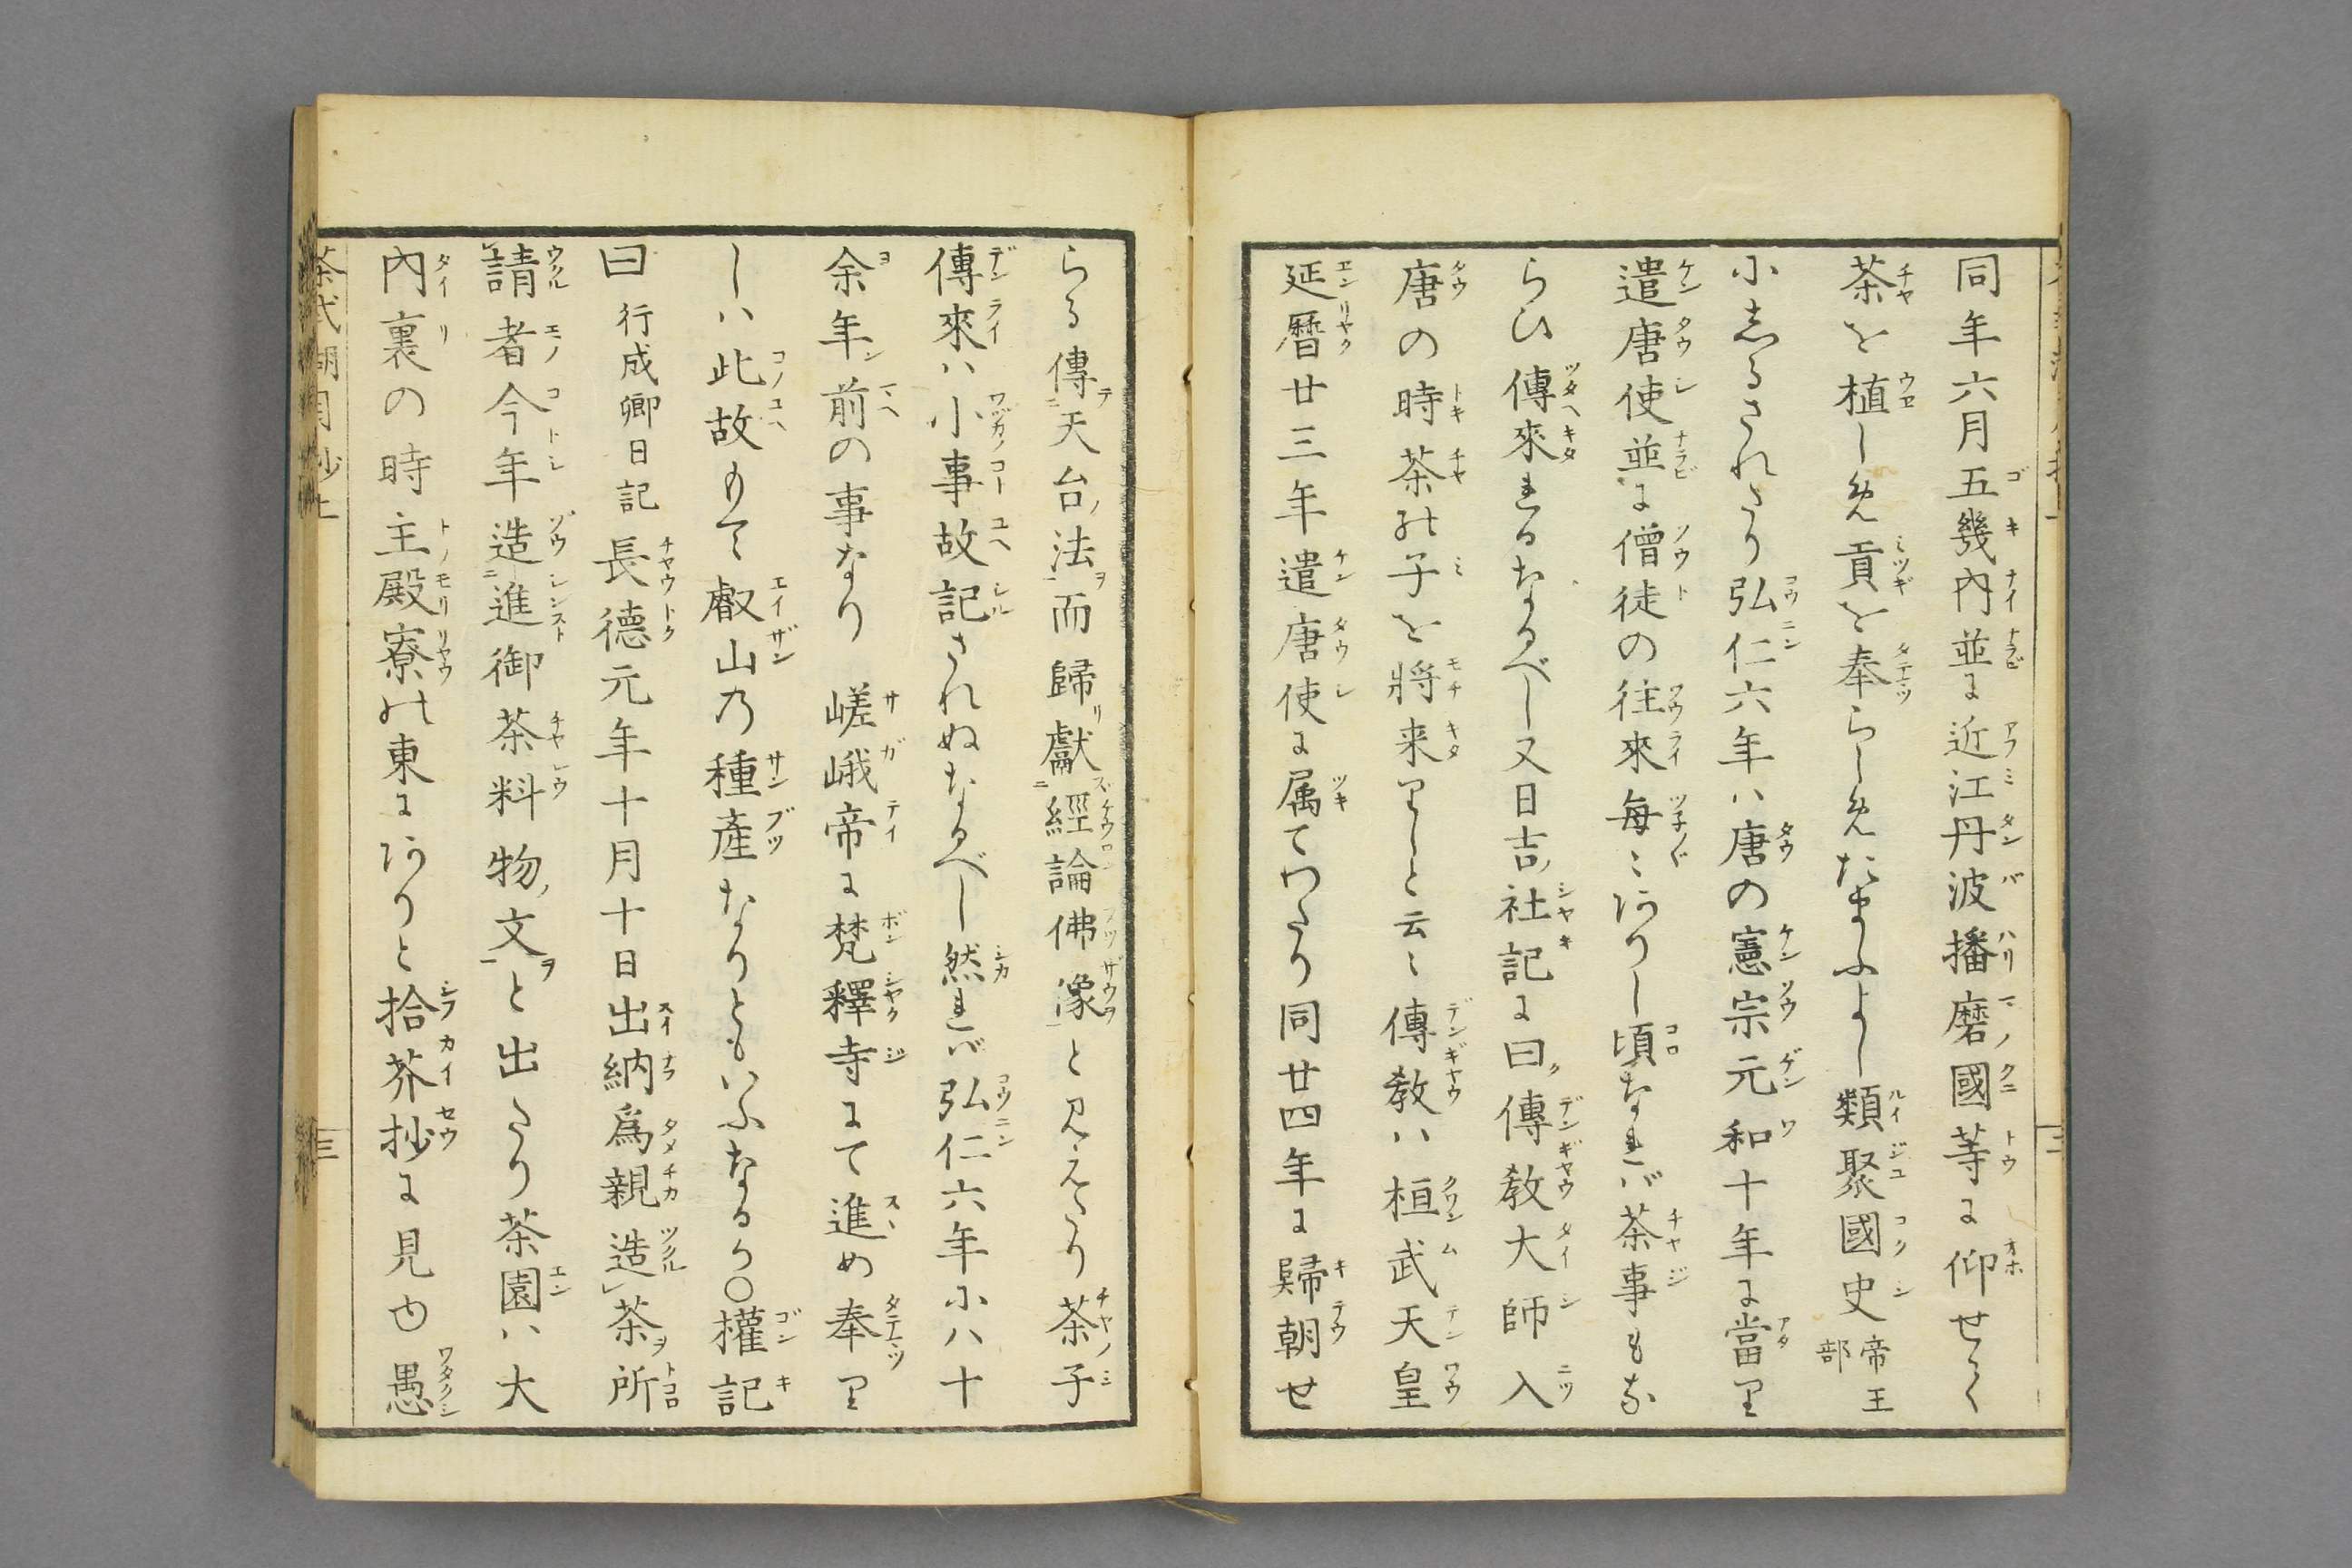 同年六月五幾內並に近江丹波播磨國等に仰せて
茶を植しめ貢を奉らしめたまふよし類聚國史帝王部
小志るされたり弘仁六年ハ唐の憲宗元和十年に當り
遣唐使並に僧徒の往來每〻ありし頃なれバ茶事もな
らひ傳來れるなるべし又日吉ノ社記に曰ク傳教大師入
唐の時茶の子を將来りしと云〻傳教ハ桓武天皇
延曆廿三年遣唐使に属てわたり同廿四年に歸朝せ
らる傳テ二天台ノ法ヲ一而歸リ獻ズ二經論佛像ヲ一と見えたり茶子
傳來ハ小事故記されぬなるべし然れバ弘仁六年小八十
余年前の事なり 嵯峨帝に梵釋寺にて進め奉り
しハ此故もて叡山乃種產なりともいふなるか〇權記
曰 行成卿日記 長德元年十月十日出納爲親造茶ヲ所
請者今年造二進御茶料物ノ文ヲ一と出たり茶園ハ大
內裏の時主殿寮の東にありと拾芥抄に見ゆ愚
三